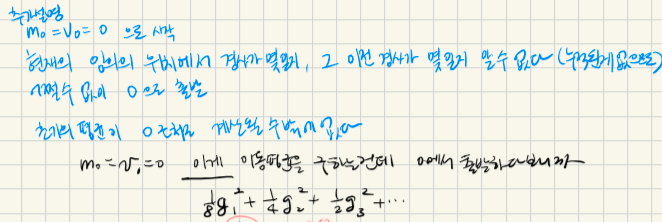 추가설명
m₀ = v₀ = 0 으로 시작
현재의 임의의 위치에서 경사가 몇일지, 그 이전 경사가 몇일지 알 수 없다 (누적된게 없으므로)
어쩔수 없이 0으로 출발
초기의 평균이 0 근처로 계산될 수 밖에 없다
m₀ = v₁ = 0 이게 이동평균을 구하는건데 0에서 출발하다보니까
1/8 g₁² + 1/4 g₂² + 1/2 g₃² + ⋯